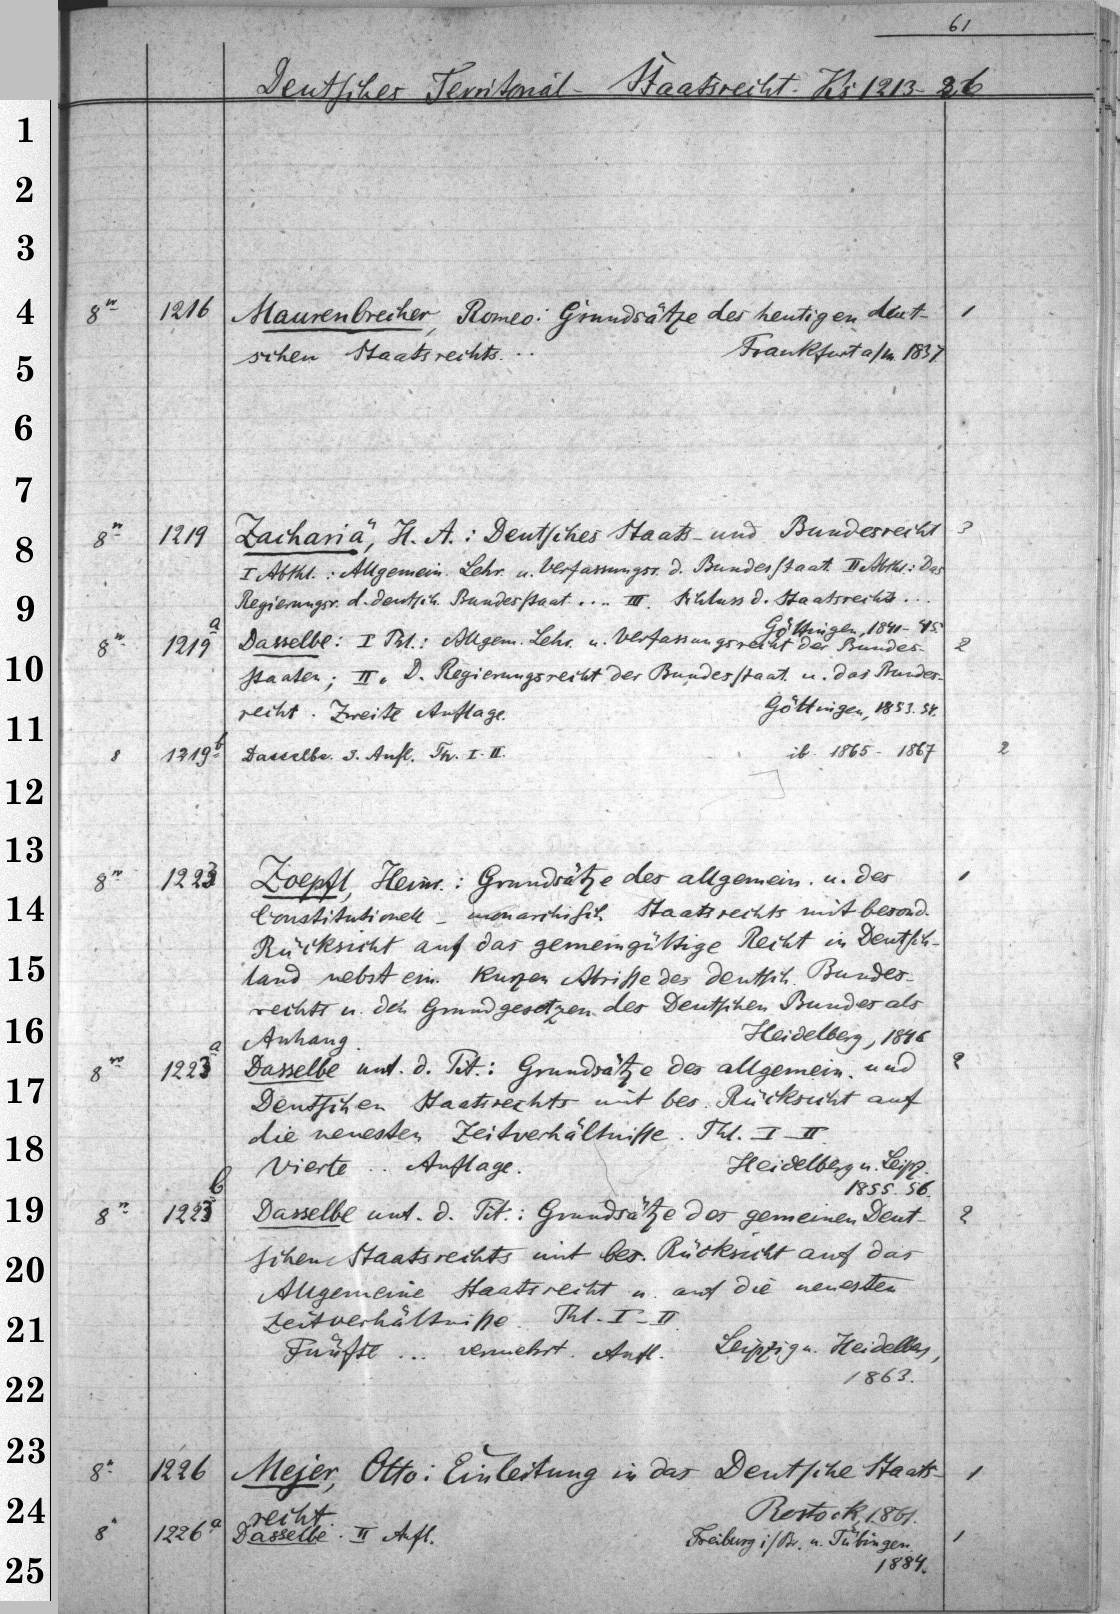 61
Deutsches Territorial- Staatsrecht. Ks 1213-26
1
2
3
4
8º 1216 Maurenbrecher, Romeo: Grundsätze des heutigen deut- 1
schen Staatsrechts... Frankfurt a/M. 1837
5
6
7
8º 1219 Zachariä, H. A.: Deutsches Staats- und Bundesrecht 3
8
I Abthl.: Allgemein. Lehr. u. Verfassungsr. d. Bundesstaat. II Abthl.: Das
Regierungsr. d. deutsch. Bundesstaat.... III. Schluss d. Staatsrechts...
9
Göttingen, 1841-45.
8º 1219a Dasselbe: I Thl.: Allgem. Lehr. u. Verfassungsrecht der Bundes- 2
10
staaten; II. D. Regierungsrecht der Bundesstaat. u. das Bundes-
recht. Zweite Auflage. Göttingen, 1853.54.
11
8 1219b Dasselbe. 3. Aufl. Th. I-II. ib. 1865-1867 2
12
13
8º 1223 Zoepfl, Heinr.: Grundsätze des allgemein. u. des 1
14
Constitutionell-monarchisch. Staatsrechts mit besond.
Rücksicht auf das gemeingültige Recht in Deutsch-
15
land nebst ein. kurzen Abrisse des deutsch. Bundes-
rechts u. den Grundgesetzen des Deutschen Bundes als
16
Anhang. Heidelberg, 1846
8º 1223a Dasselbe unt. d. Tit.: Grundsätze des allgemein. und 2
17
Deutschen Staatsrechts mit bes. Rücksicht auf
die neuesten Zeitverhältnisse. Thl. I-II.
18
Vierte .. Auflage. Heidelberg u. Leipz.
1855.56.
19
8º 1223b Dasselbe unt. d. Tit.: Grundsätze des gemeinen Deut- 2
schen Staatsrechts mit bes. Rücksicht auf das
20
Allgemeine Staatsrecht u. auf die neuesten
21
Zeitverhältnisse. Thl. I-II.
Fünfte ... vermehrt. Aufl. Leipzig u. Heidelberg,
22
1863.
23
8º 1226 Mejer, Otto: Einleitung in das Deutsche Staats- 1
24
recht. Rostock, 1861.
8º 1226a Dasselbe. II Aufl. Freiburg i/Br. u. Tübingen 1
25
1884.